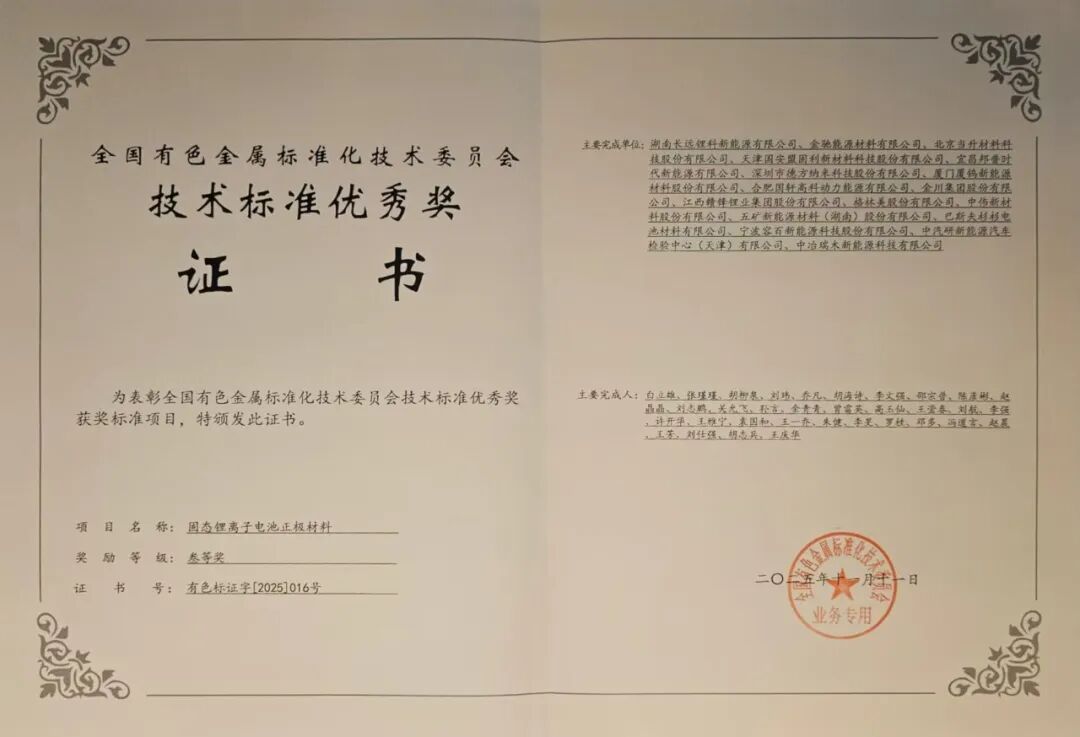 全国有色金属标准化技术委员会
技术标准优秀奖
证 书
为表彰全国有色金属标准化技术委员会技术标准优秀奖
获奖标准项目，特颁发此证书。
项目名称：固态锂离子电池正极材料
奖励等级：叁等奖
证书号：有色标证字[2025]016号
主要完成单位：湖南长远锂科新能源有限公司、金驰能源材料有限公司、北京当升材料科
技股份有限公司、天津国安盟固利新材料科技股份有限公司、宜昌邦普时
代新能源有限公司、深圳市德方纳米科技股份有限公司、厦门厦钨新能源
材料股份有限公司、合肥国轩高科动力能源有限公司、金川集团股份有限
公司、江西赣锋锂业集团股份有限公司、格林美股份有限公司、中伟新材
料股份有限公司、五矿新能源材料（湖南）股份有限公司、巴斯夫杉杉电
池材料有限公司、宁波容百新能源科技股份有限公司、中汽研新能源汽车
检验中心（天津）有限公司、中冶瑞木新能源科技有限公司
主要完成人：白立雄、张瑾瑾、胡柳泉、刘玮、乔凡、胡海诗、李文强、邵宗普、陈彦彬、赵
晶晶、刘志鹏、关允飞、孙言、余青青、曾雷英、高玉仙、王雪春、刘航、李强
、许开华、王雅宁、袁国和、王一乔、朱健、李旻、罗桂、邓多、冯道言、赵晨
、王芳、刘仕强、胡志兵、王庆华
二〇二五年十一月十一日
全国有色金属标准化技术委员会
业务专用